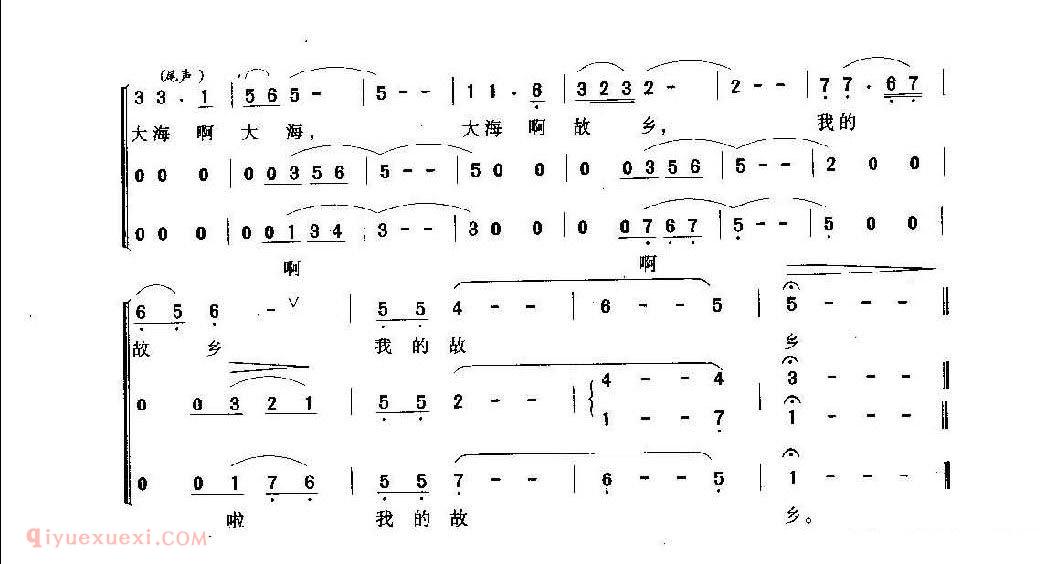 (尾声)
3 3 · 1 | 5 6 5 - | 5 - - | 1 1 · 6 | 3 2 3 2 - | 2 - - | 7 7 · 6 7 |
大海啊大海, 大海啊故乡, 我的
0 0 0 | 0 0 3 5 6 | 5 - - | 5 0 0 | 0 0 3 5 6 | 5 - - | 2 0 0 |
0 0 0 | 0 0 1 3 4 | 3 - - | 3 0 0 | 0 0 7 6 7 | 5 - - | 5 0 0 |
啊 啊
6 5 6 - V | 5 5 4 - - | 6 - 5 | 5 - - ‖
故乡 我的故 乡
0 0 3 2 1 | 5 5 2 - - | { 4 - - 4 | 3 - - ‖
1 - - 7 | 1 - - ‖
0 0 1 7 6 | 5 5 7 - - | 6 - - 5 | 1 - - ‖
啦 我的故 乡。
qiyuexuexi.com